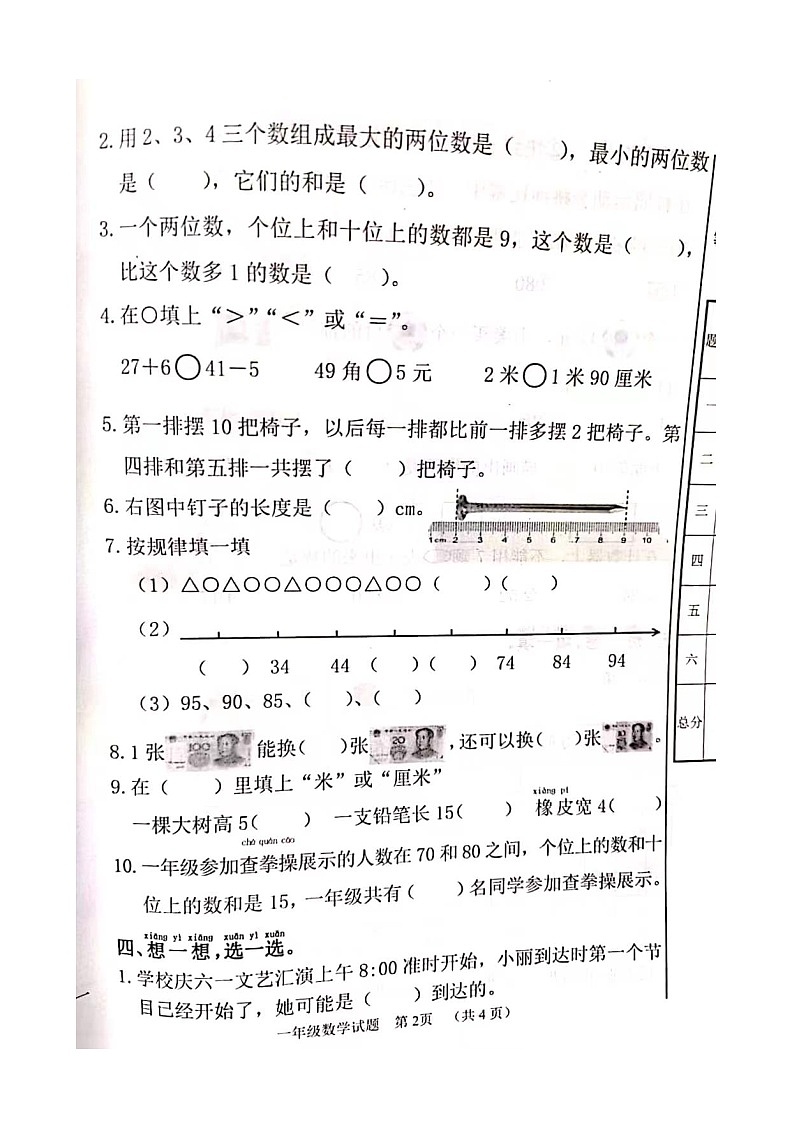 2.用2、3、4三个数组成最大的两位数是(    ),最小的两位数
是(    ),它们的和是(    )。
3.一个两位数,个位上和十位上的数都是9,这个数是(    ),
比这个数多1的数是(    )。
4.在○填上“>”“<”或“=”。
27+6○41-5    49角○5元    2米○1米90厘米
5.第一排摆10把椅子,以后每一排都比前一排多摆2把椅子。第
四排和第五排一共摆了(    )把椅子。
6.右图中钉子的长度是(    )cm。
1cm 2 3 4 5 6 7 8 9 10
7.按规律填一填
(1)△○△○○△○○○△○○(    )(    )
(2)
(    ) 34 44 (    )(    ) 74 84 94
(3)95、90、85、(    )、(    )
8.1张 100 能换(    )张 20 ,还可以换(    )张 10 。
9.在(    )里填上“米”或“厘米”
xiàng pí
一棵大树高5(    )  一支铅笔长15(    )  橡皮宽4(    )
chá quán cāo
10.一年级参加查拳操展示的人数在70和80之间,个位上的数和十
位上的数和是15,一年级共有(    )名同学参加查拳操展示。
xiǎng yì xiǎng xuǎn yì xuǎn
四、想一想,选一选。
1.学校庆六一文艺汇演上午8:00准时开始,小丽到达时第一个节
目已经开始了,她可能是(    )到达的。
一年级数学试题 第2页 (共4页)
题
一
二
三
四
五
六
总分